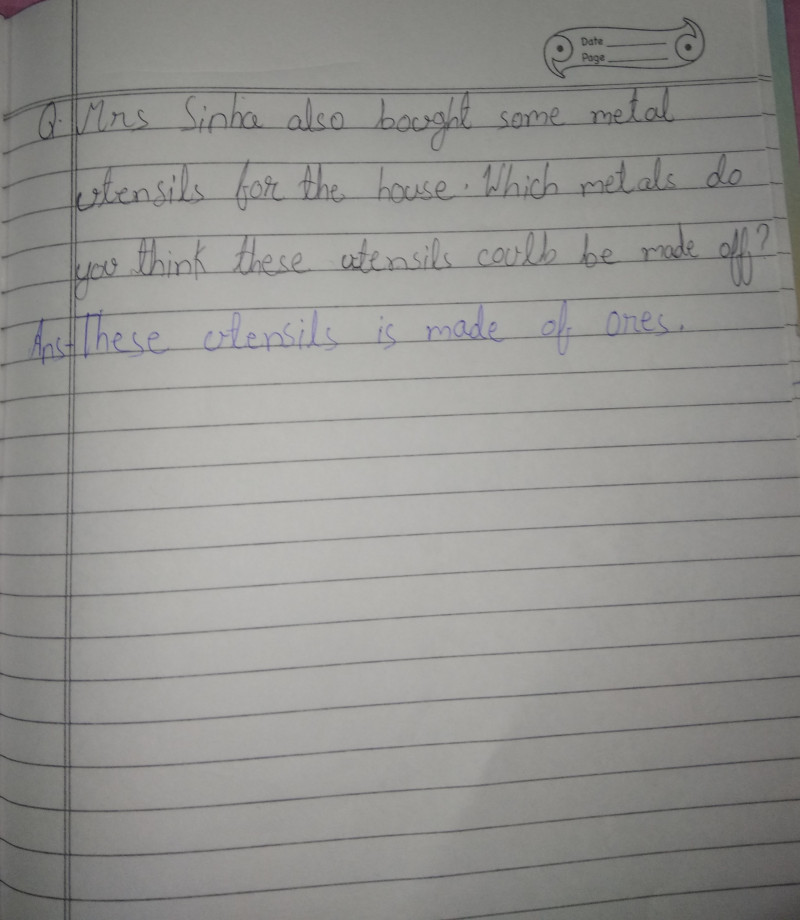 Date
Page
Q. Mrs Sinha also bought some metal
utensils for the house. Which metals do
you think these utensils could be made off?
Ans- These utensils is made of ores.